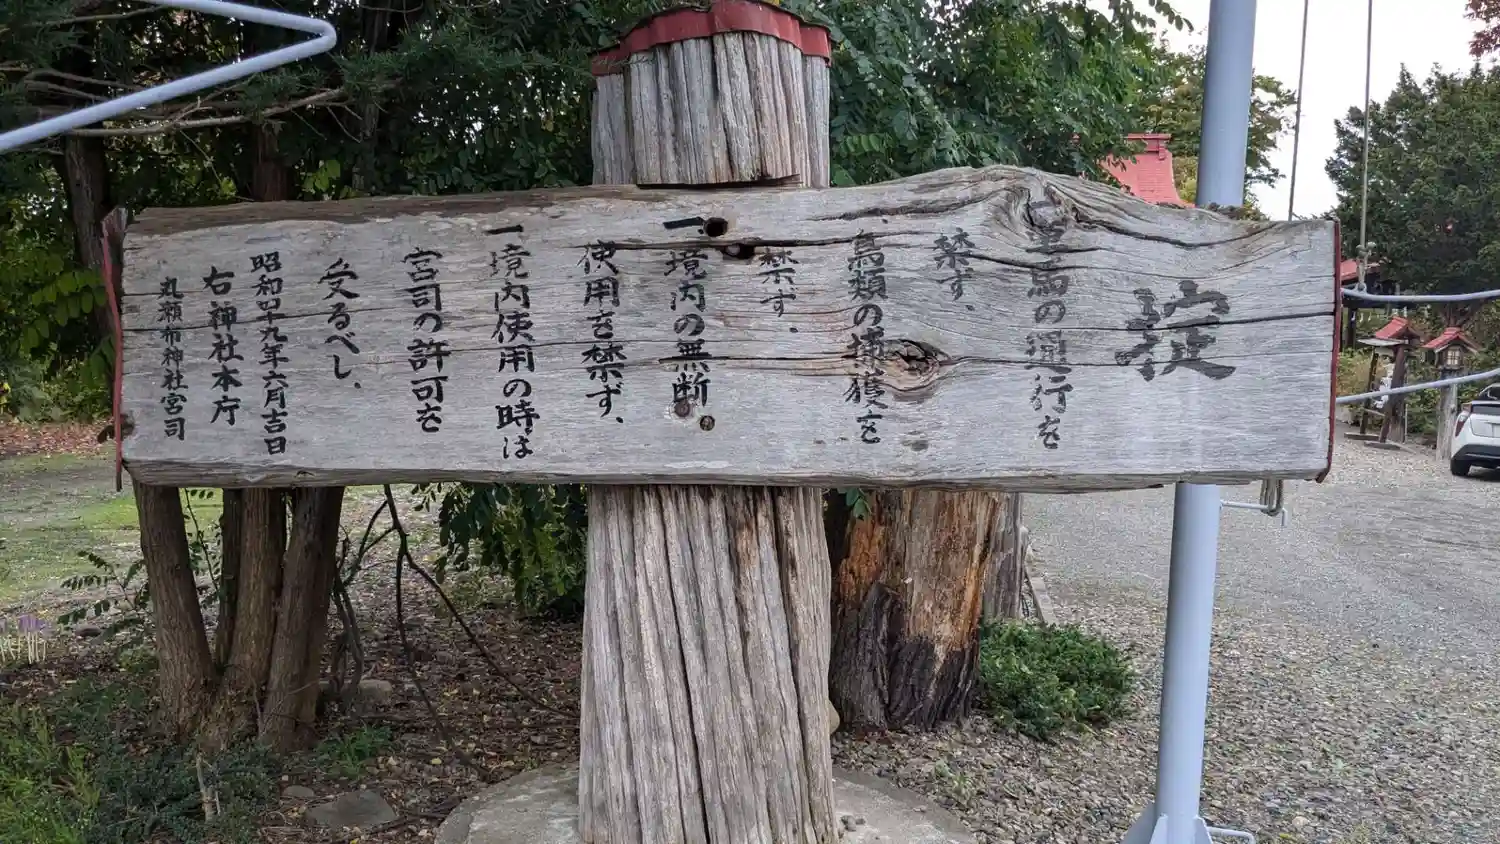 掟
車馬の通行を
禁ず、
鳥類の捕獲を
禁ず、
一、境内の無断。
使用を禁ず、
一境内使用の時は
宮司の許可を
受るべし、
昭和四十九年六月吉日
右神社本庁
丸瀬布神社宮司